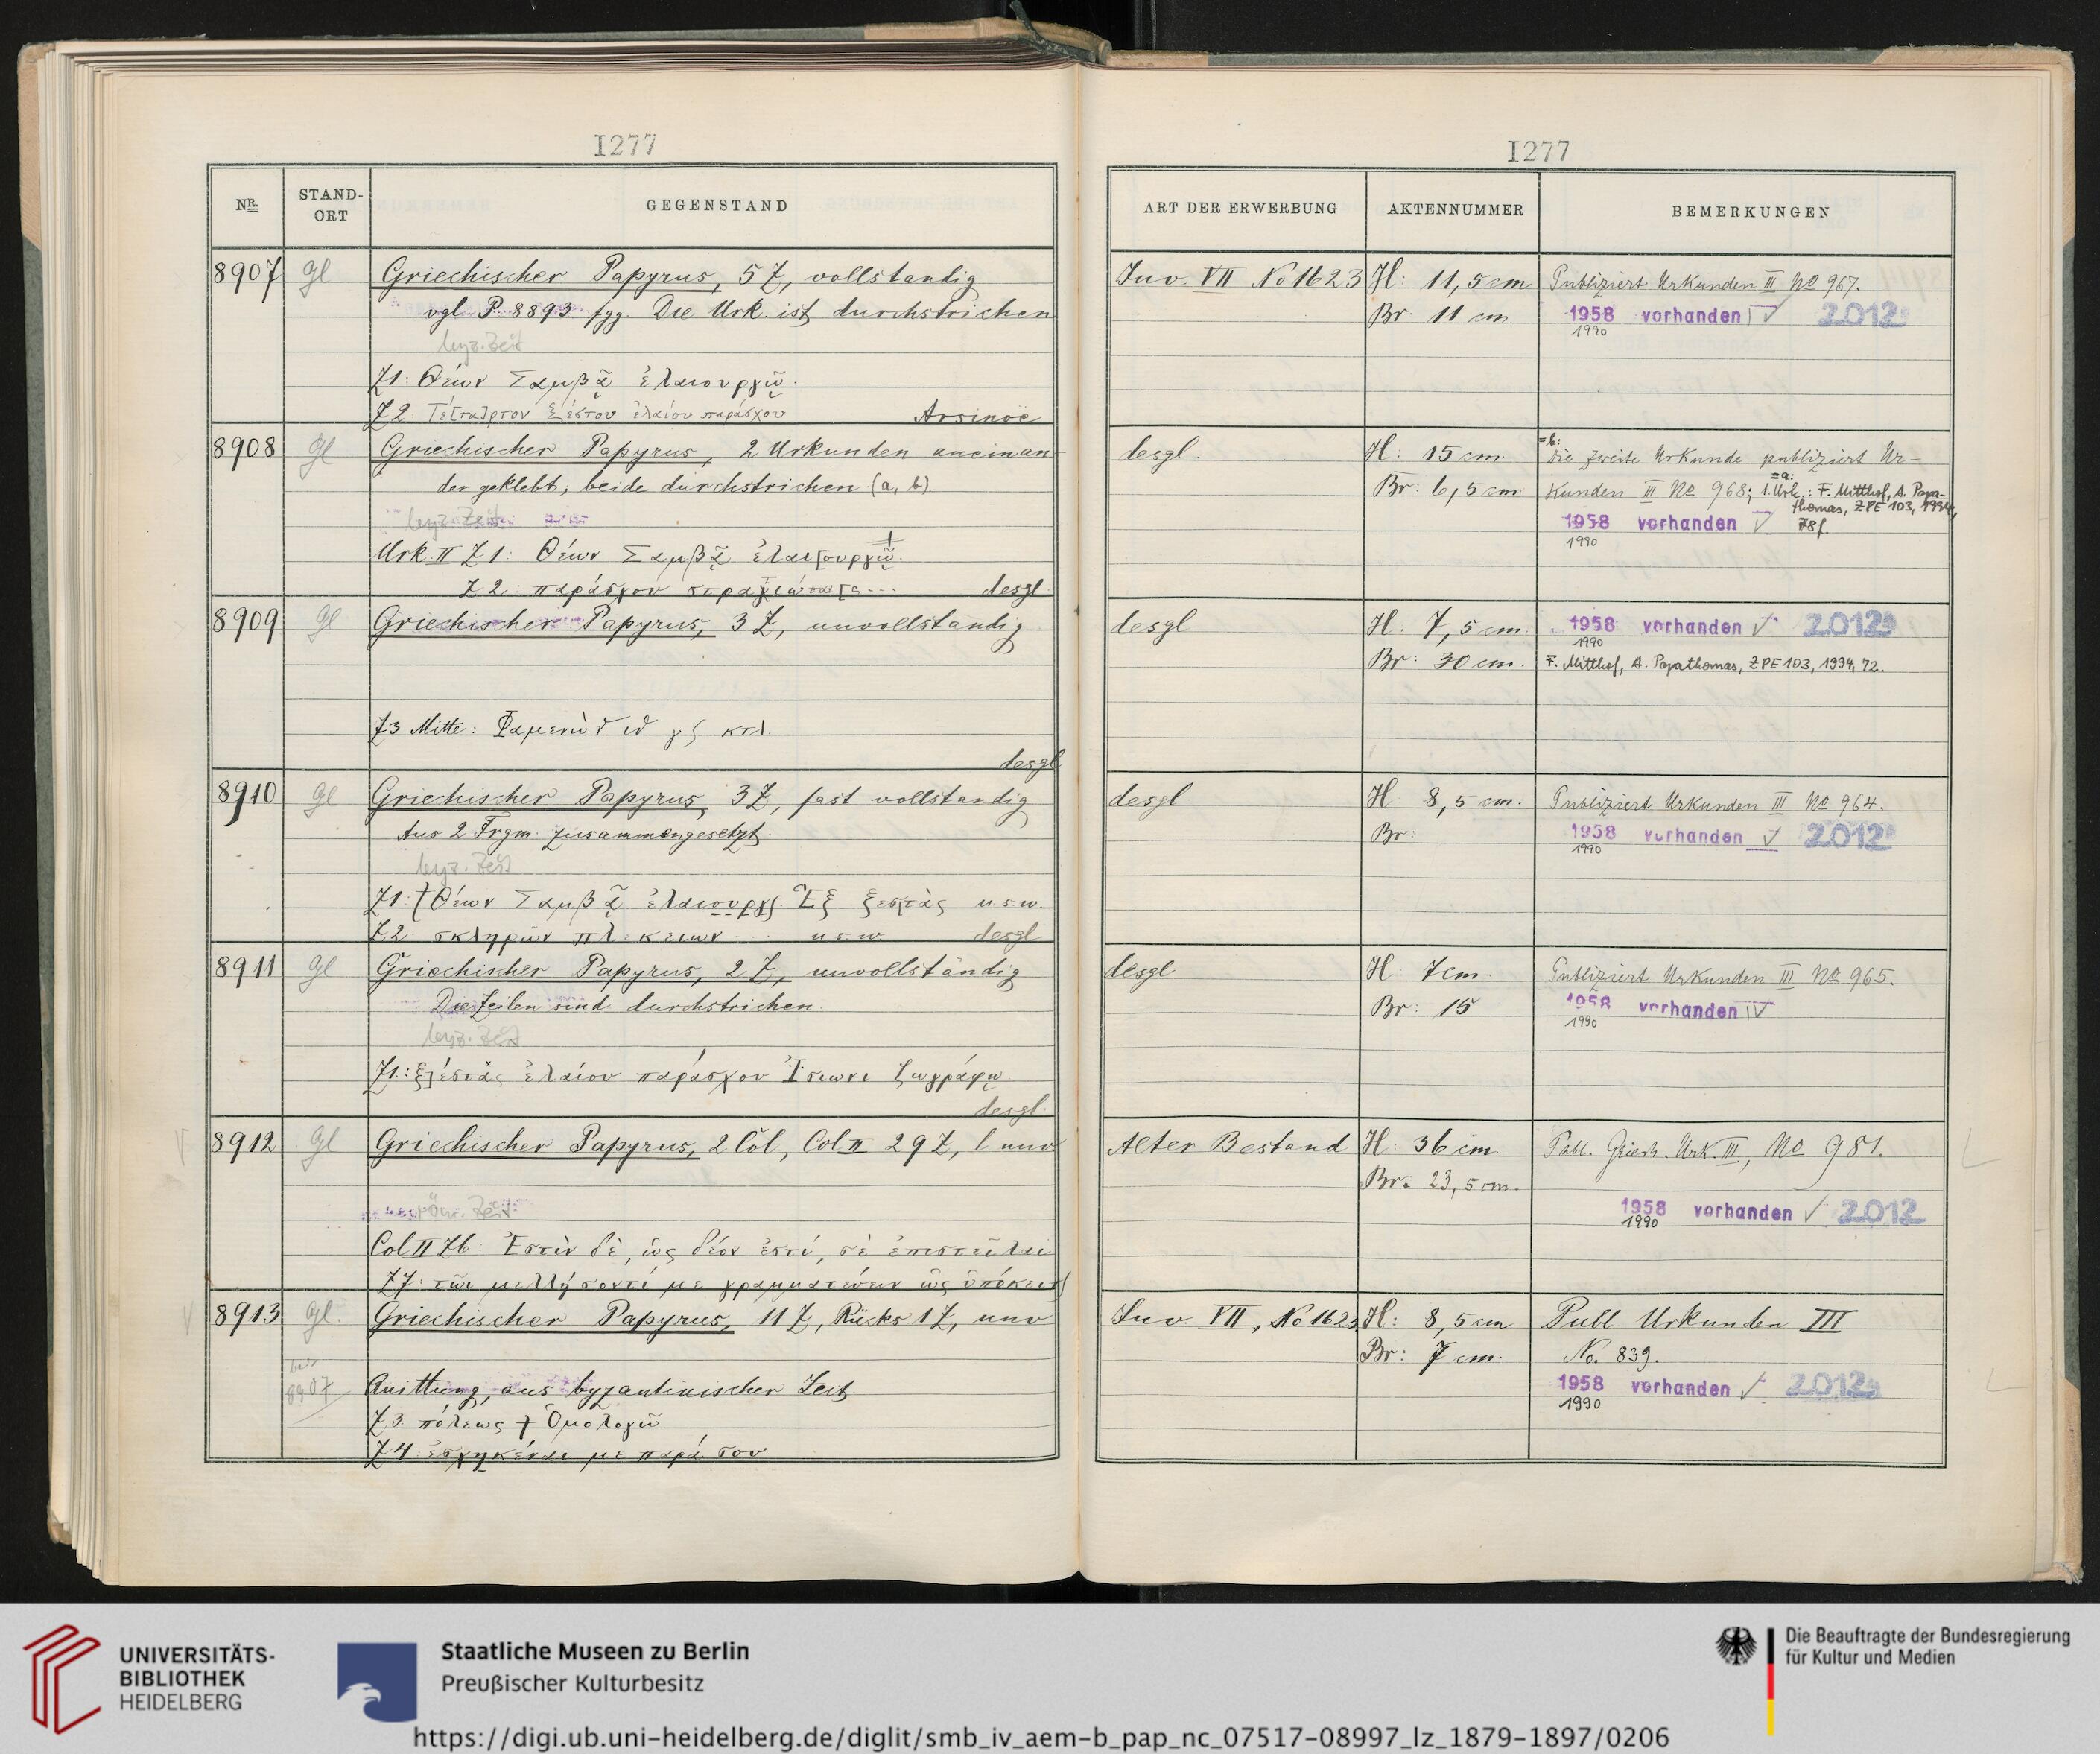 1277
NR.
STAND-
ORT
GEGENSTAND
8907 gl Griechischer Papyrus, 5 Z, vollständig
vgl P. 8893 fgg. Die Urk. ist durchstrichen
byz. Zeit
Z1: Θέων Σαμβᾷ ἐλαιουργῷ.
Z2: Τέ[τα]ρτον ξέστου ἐλαίου παράσχου Arsinoe
8908 gl Griechischer Papyrus, 2 Urkunden aneinan
der geklebt, beide durchstrichen (a, b).
byz. Zeit
Urk. II Z1: Θέων Σαμβᾷ ἐλαι[ουργῷ.
Z2: παράσχου desgl.
8909 gl Griechischer Papyrus, 3 Z, unvollständig
Z3 Mitte: Φαμενὼθ ιθ κτλ.
desgl
8910 gl Griechischer Papyrus, 3 Z, fast vollständig
Aus 2 Frgm. zusammengesetzt.
byz. Zeit
Z1: Θέων Σαμβᾷ ἐλαιουργ Ἓξ ξεστὰς usw.
Z2: σκληρῶν usw desgl
8911 gl Griechischer Papyrus, 2 Z, unvollständig
Die Zeilen sind durchstrichen.
byz. Zeit
Z1: ξ]έστας ἐλαίου παράσχου Ἰσιωνι ζωγράφῳ
desgl.
8912 gl Griechischer Papyrus, 2 Col, Col II 29 Z, l unv
röm. Zeit
Col II Z6: Ἐστὶν δὲ, ὡς δέον ἐστί, σὲ ἐπιστεῖλαι
Z7: τῶι μελλήσοντί με γραμματεύειν ὡς ὑπόκειτ
8913 gl. Griechischer Papyrus, 11 Z, Rücks 1 Z, unv
bei
8907 Quittung, aus byzantinischer Zeit
Z3: πόλεως Ὁμολογῶ
Z4: ἐσχηκέναι με παρά σου
1277
ART DER ERWERBUNG
AKTENNUMMER
BEMERKUNGEN
Inv. VII No 1623 H: 11,5 cm Publiziert Urkunden III No 967.
Br: 11 cm. 1958 vorhanden √ 2012
1990
desgl. H: 15 cm. =b: die zweite Urkunde publiziert Ur-
Br: 6,5 cm. kunden III No 968; =a: 1. Urk.: F. Mitthof, A. Papa-
thomas, ZPE 103, 1994,
1958 vorhanden √ 78f.
1990
desgl H: 7,5 cm. 1958 vorhanden √ 2012
1990
Br: 30 cm. F. Mitthof, A. Papathomas, ZPE 103, 1994, 72.
desgl H: 8,5 cm. Publiziert Urkunden III No 964.
Br: 1958 vorhanden √ 2012
1990
desgl. H: 7 cm. Publiziert Urkunden III No 965.
Br: 15 1958 vorhanden √
1990
Alter Bestand H: 36 cm Publ. Griech. Urk. III, No 981.
Br: 23,5 cm.
1958 vorhanden √ 2012
1990
Inv. VII, No 1623 H: 8,5 cm Publ Urkunden III
Br: 7 cm. No. 839.
1958 vorhanden √ 2012
1990
UNIVERSITÄTS-
BIBLIOTHEK
HEIDELBERG
Staatliche Museen zu Berlin
Preußischer Kulturbesitz
Die Beauftragte der Bundesregierung
für Kultur und Medien
https://digi.ub.uni-heidelberg.de/diglit/smb_iv_aem-b_pap_nc_07517-08997_lz_1879-1897/0206